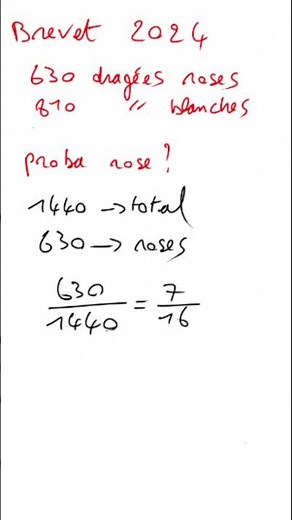 Brevet 2024
630 dragées roses
810 " blanches
proba rose?
1440 → total
630 → roses
630/1440 = 7/16